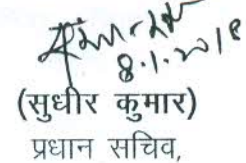 8.1.2018
(सुधीर कुमार)
प्रधान सचिव,